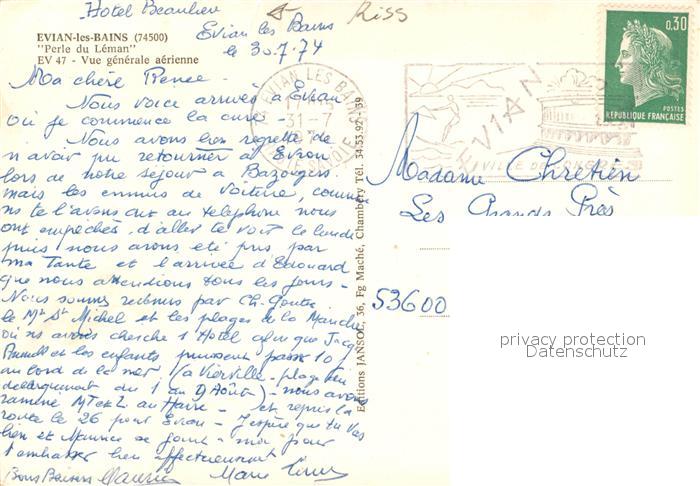 Hotel Beaulieu
Riss
Evian les Bains
le 30.7.74
EVIAN-les-BAINS (74500)
"Perle du Léman"
EV 47 - Vue générale aérienne
0.30
POSTES
REPUBLIQUE FRANÇAISE
EVIAN LES BAINS
31-7
EVIAN
VILLE DE CONGRES
Ma chère Renee -
Nous voici arrivés à Evian
où je commence la cure
Nous avons bien regretté de
n'avoir pu retourner à Evron
lors de notre séjour à Bazougers
mais les ennuis de voiture, comme
ns te l'avons dit au téléphone nous
ont empêchés d'aller te voir le lundi
puis nous avons été pris par
ma Tante et l'arrivée d'Edouard
que nous attendions tous les jours -
Nous sommes revenus par
le Mt St Michel et les plages de la Manche
où ns avons cherché 1 Hotel afin que Jacq
et les enfants puissent passer 10 j
au bord de la mer (à Vierville - plage du
débarquement du 1 au 9 Août) - nous avons
ramené au Havre - et repris la
route le 26 pour Evian - J'espère que tu vas
bien et Maurice se joint à moi pour
t'embrasser bien affectueusement
Bons Baisers Maurice Marie
Editions JANSOL, 36, Fg Maché, Chambéry Tél. 34-53-92 - 59
Madame Chretien
Les Grands Près
53600
privacy protection
Datenschutz